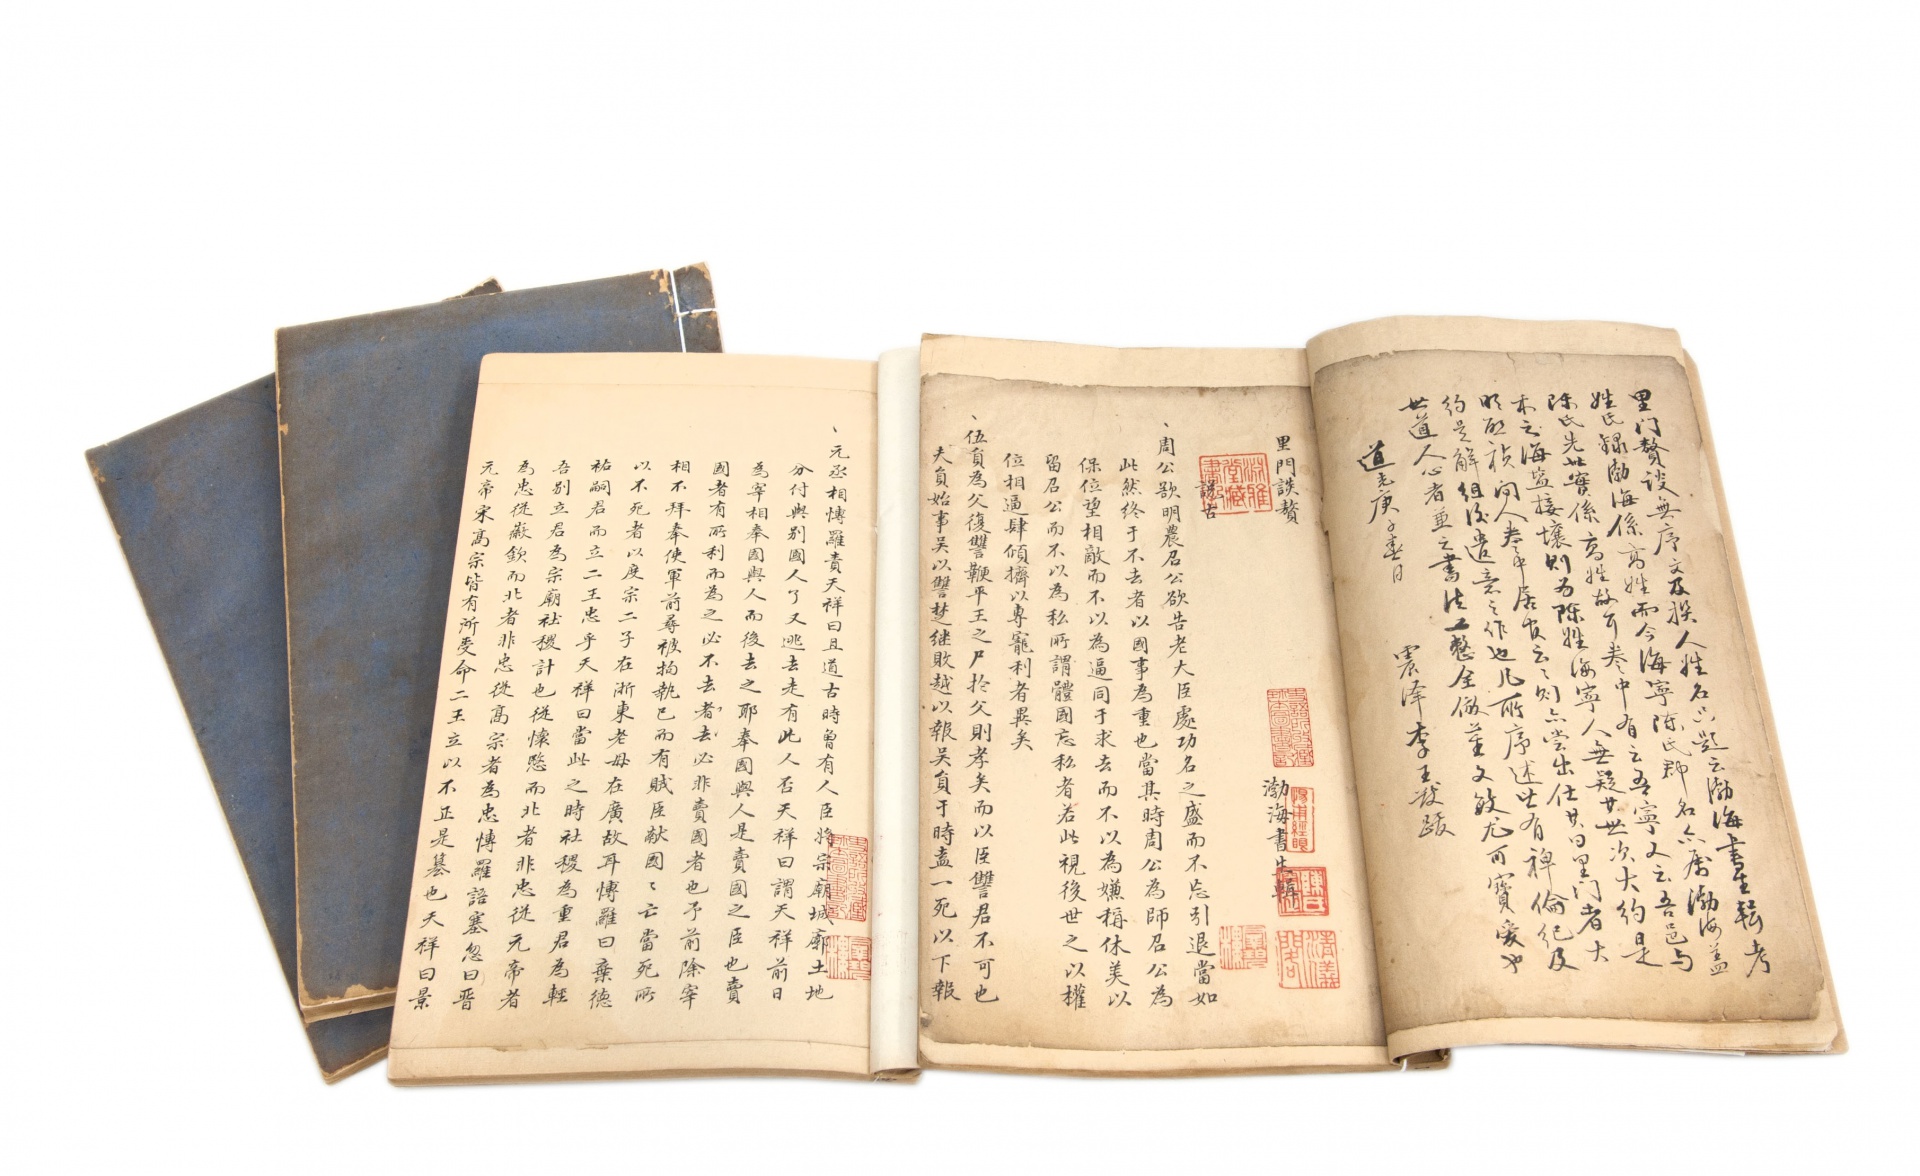 里門贅談無序文及撰人姓名只題云渤海書生輯考
姓氏錄渤海係高姓而今海寧陳氏郡名亦属渤海盖
陳氏先世實係高姓故耳卷中有云吾寧又云吾邑与
海盐接壤則为陳姓海寧人無疑廿世次大约是
明 问人卷中居官云云则亦尝出仕其曰里门者大
约是解组後遣意之作也凡所序述皆有裨倫纪及
世道人心者兼之書法工整全倣董文敏尤可寶爱也
道光庚子春日
震泽李王 跋
里門談贅
説古
渤海書生輯
周公欲明農召公欲告老大臣處功名之盛而不忘引退當如
此然終于不去者以國事為重也當其時周公為師召公為
保位望相敵而不以為逼同于求去而不以為嫌稱休美以
留召公而不以為私所謂體國忘私者若此視後世之以權
位相逼肆傾擠以專寵利者異矣
伍貟為父復讐鞭平王之尸於父則孝矣而以臣讐君不可也
夫貟始事吴以讐楚继敗越以報吴貟于時盍一死以下報
元丞相愽羅責天祥曰且道古時曾有人臣將宗廟城廓土地
分付與别國人了又逃去走有此人否天祥曰謂天祥前日
為宰相奉國與人而後去之耶奉國與人是賣國之臣也賣
國者有所利而為之必不去者去必非賣國者也予前除宰
相不拜奉使軍前尋被拘執已而有賊臣献國〻亡當死所
以不死者以度宗二子在淛東老母在廣故耳愽羅曰棄德
祐嗣君而立二王忠乎天祥曰當此之時社稷為重君為輕
吾别立君為宗廟社稷計也從懷愍而北者非忠從元帝者
為忠從徽欽而北者非忠從高宗者為忠愽羅語塞忽曰晋
元帝宋高宗皆有所受命二王立以不正是篡也天祥曰景